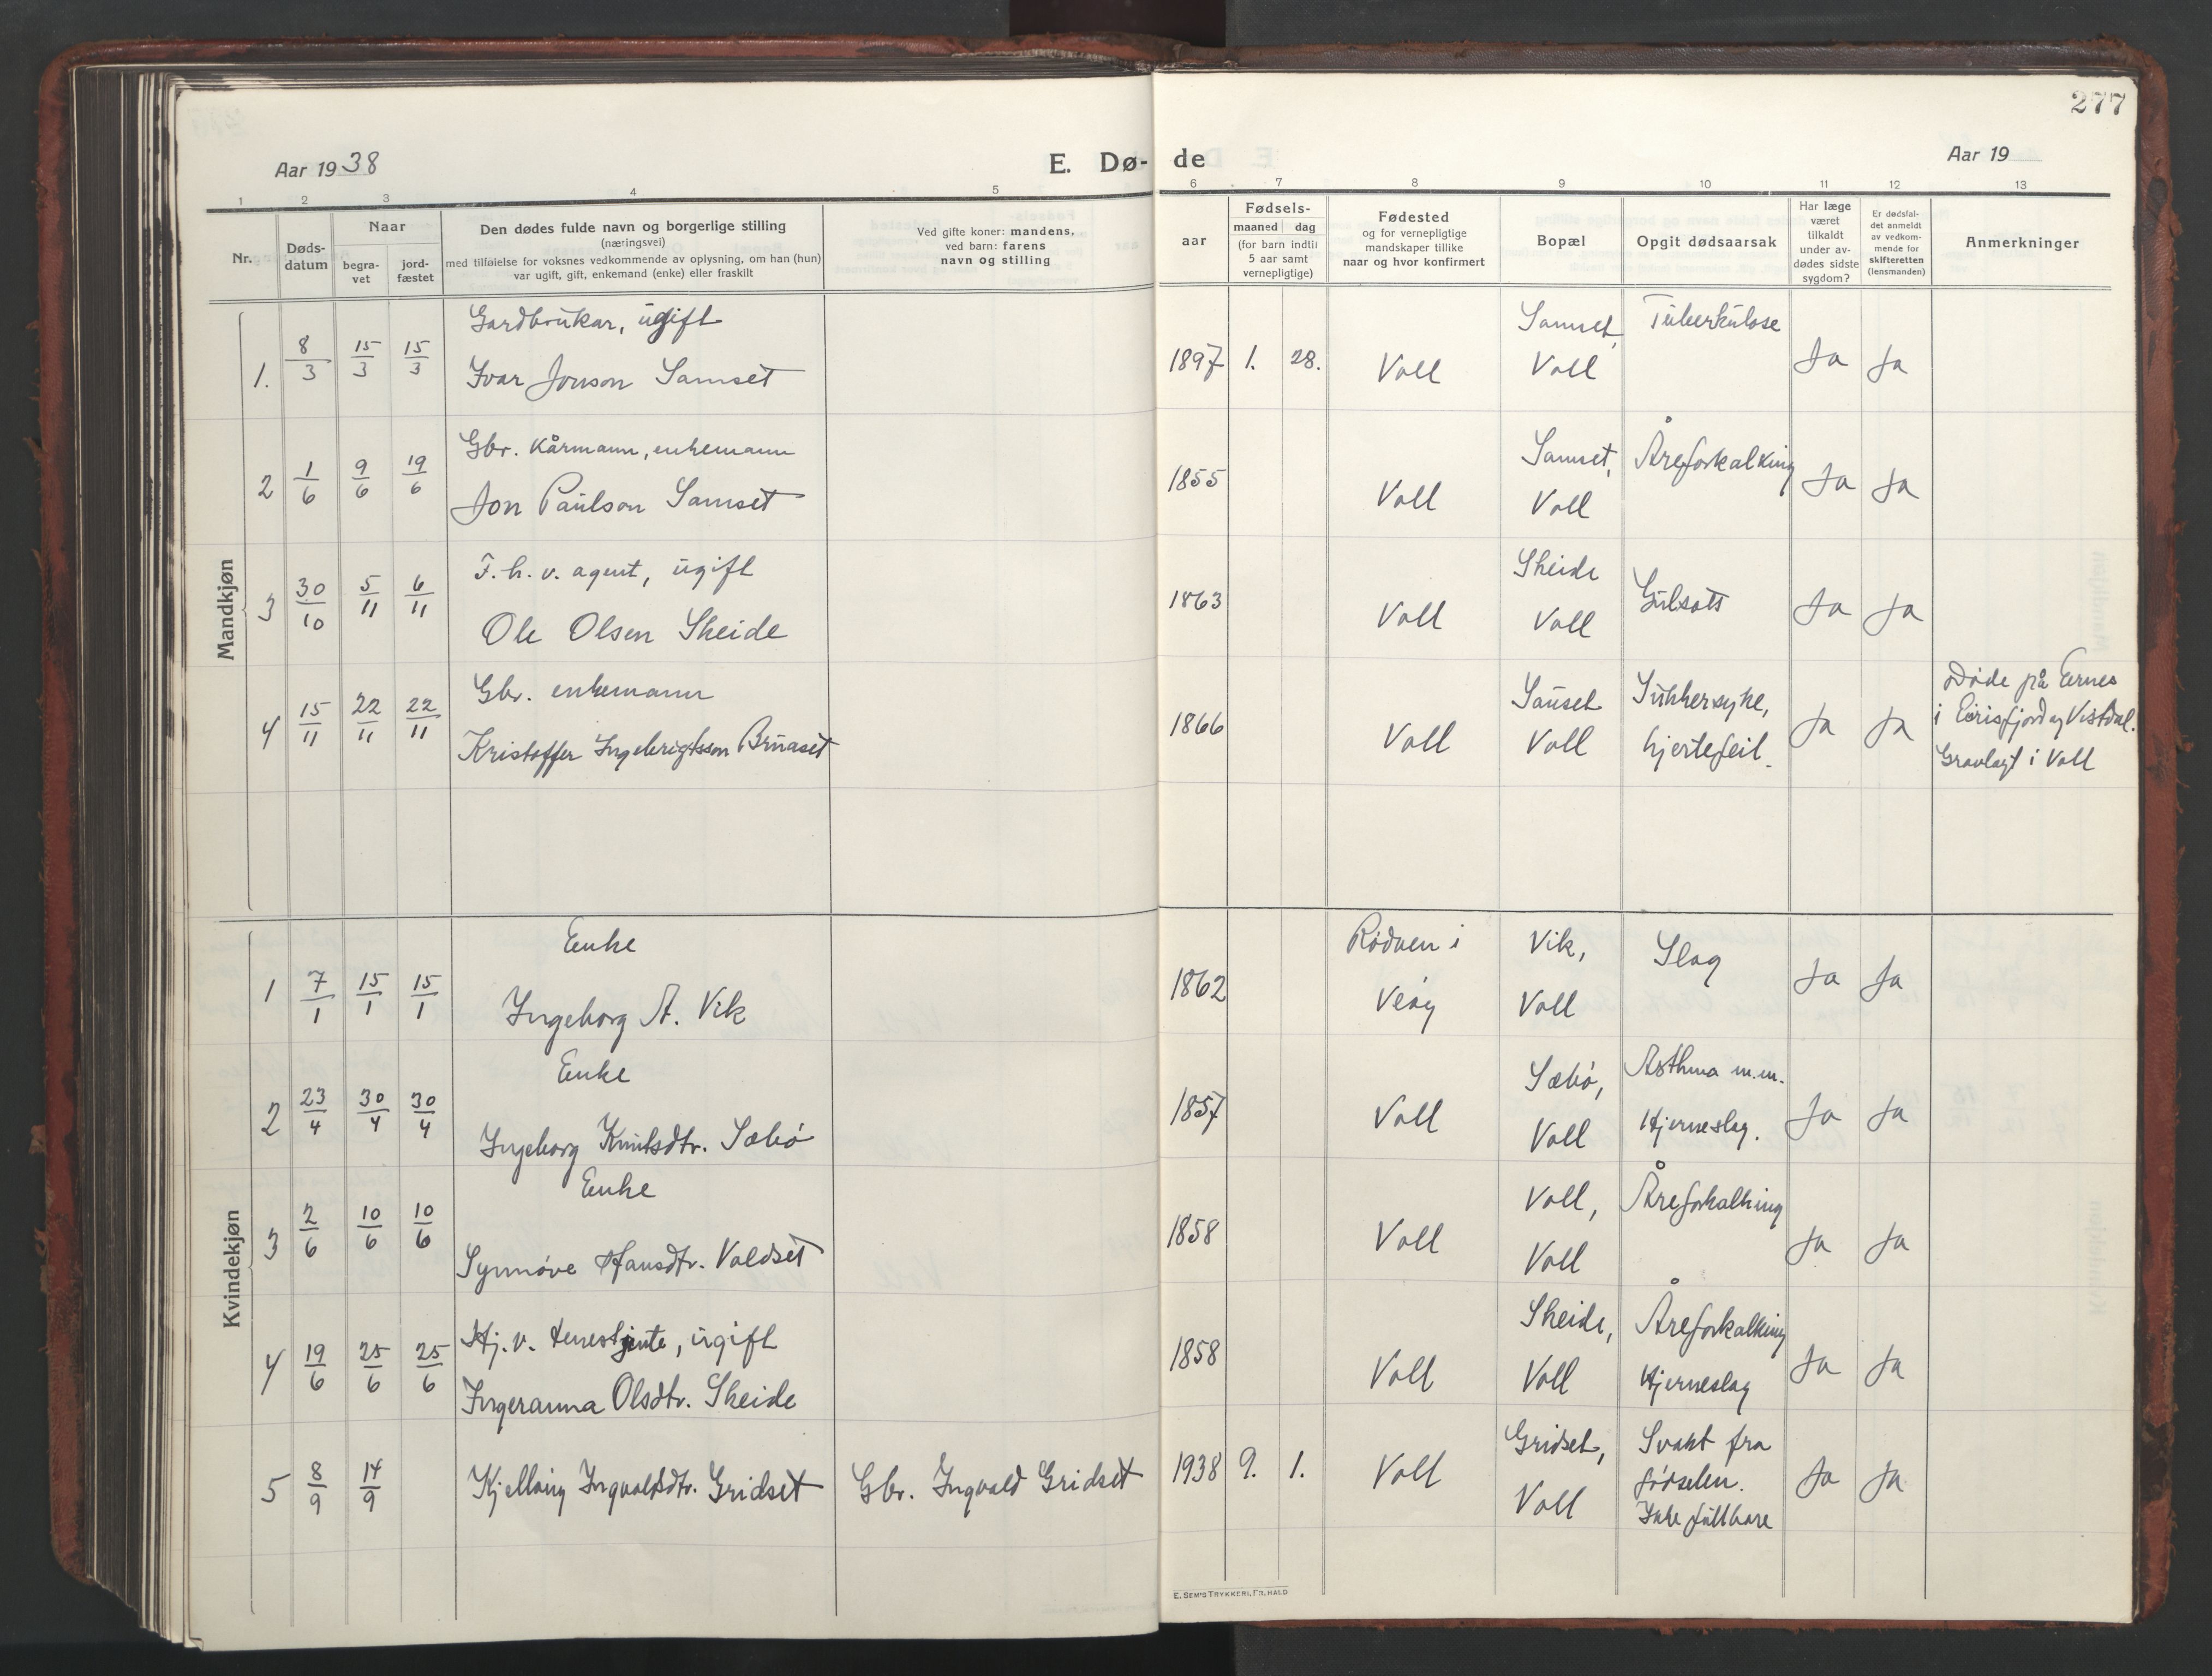 277
Aar 1938
E. Dø-
de
Aar 19
1 2 3 4 5 6 7 8 9 10 11 12 13
Nr.
Døds-
datum
Naar
begra-
vet
jord-
fæstet
Den dødes fulde navn og borgerlige stilling
(næringsvei)
med tilføielse for voksnes vedkommende av oplysning, om han (hun)
var ugift, gift, enkemand (enke) eller fraskilt
Ved gifte koner: mandens,
ved barn: farens
navn og stilling
aar
Fødsels-
maaned dag
(for barn indtil
5 aar samt
vernepligtige)
Fødested
og for vernepligtige
mandskaper tillike
naar og hvor konfirmert
Bopæl
Opgit dødsaarsak
Har læge
været
tilkaldt
under av-
dødes sidste
sygdom?
Er dødsfal-
det anmeldt
av vedkom-
mende for
skifteretten
(lensmanden)
Anmerkninger
Mandkjøn
1. 8/3 15/3 15/3
Gardbrukar, ugift
Ivar Jonson Samset
1897 1. 28. Voll
Samset,
Voll
Tuberkulose
Ja Ja
2 1/6 9/6 19/6
Gbr. Kårmann, enkemann
Jon Paulson Samset
1855 Voll
Samset,
Voll
Åreforkalking
Ja Ja
3 30/10 5/11 6/11
F.h.v. agent, ugift
Ole Olsen Skeide
1863 Voll
Skeide
Voll
Gulsott
Ja Ja
4 15/11 22/11 22/11
Gbr. enkemann
Kristoffer Ingebrigtsson Bruaset
1866 Voll
Voll
Sukkersyke,
hjertefeil.
Ja Ja
Døde på
i Eirisfjord og Vistdal.
Gravlagt i Voll
Kvindekjøn
1 7/1 15/1 15/1
Enke
Ingeborg A. Vik
1862
Rødven i
Veøy
Vik,
Voll
Slag
Ja Ja
2 23/4 30/4 30/4
Enke
Ingeborg Knutsdtr. Sæbø
1857 Voll
Sæbø,
Voll
Asthma m.m.
Hjerneslag.
Ja Ja
3 2/6 10/6 10/6
Enke
Synnøve Hansdtr. Voldset
1858 Voll
Voll,
Voll
Åreforkalking
Ja Ja
4 19/6 25/6 25/6
Hj.v. tenestjente, ugift
Ingeranna Olsdtr. Skeide
1858 Voll
Skeide,
Voll
Åreforkalking
Hjerneslag
Ja Ja
5 8/9 14/9
Kjellaug Ingvaldsdtr. Gridset
Gbr. Ingvald Gridset
1938 9. 1. Voll
Gridset,
Voll
Svakt fra
fødselen.
Ikke fullbore
Ja Ja
E. SEM'S TRYKKERI, FR.HALD